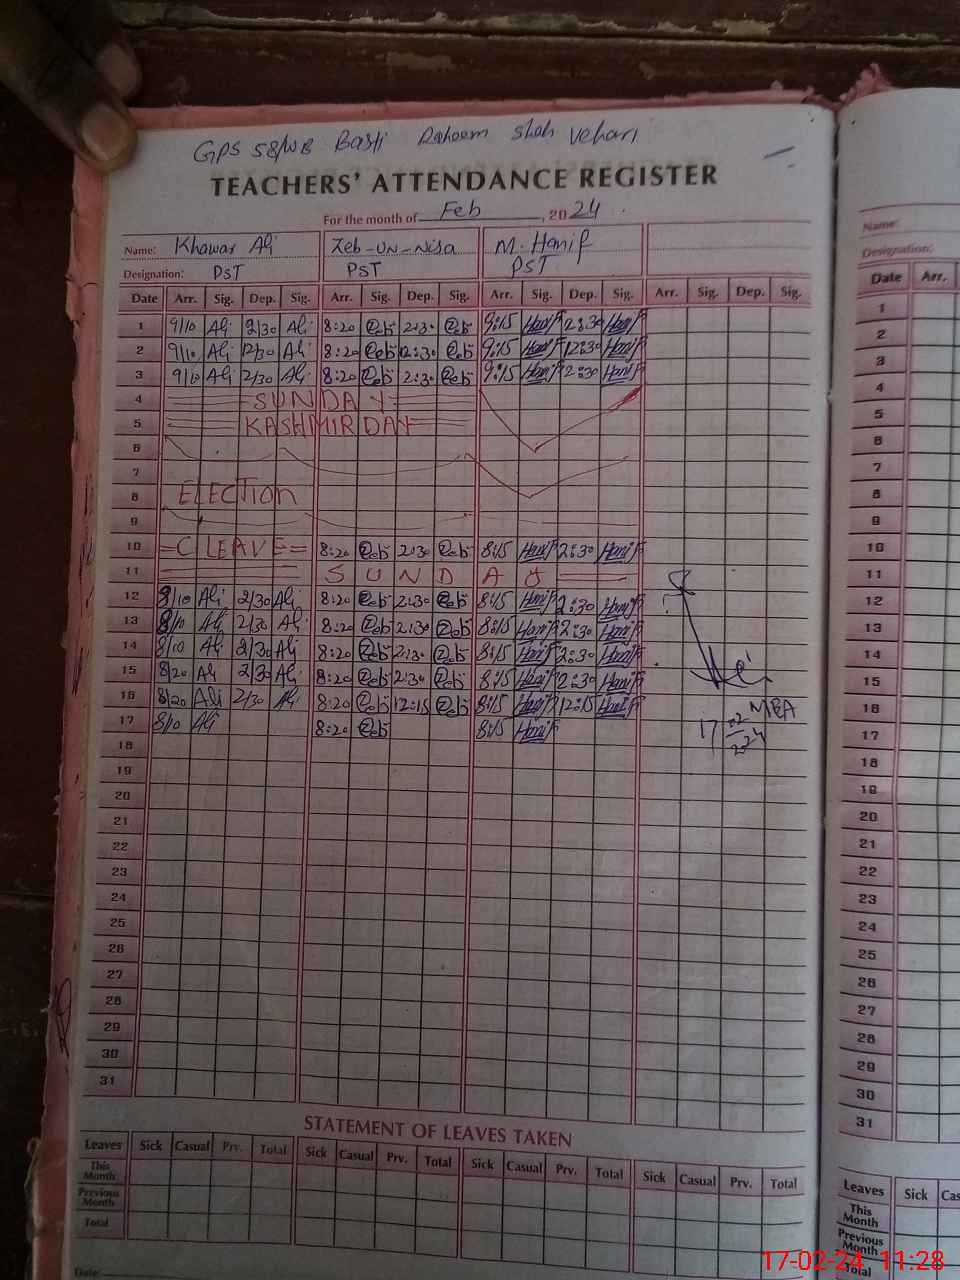 GPS 58/WB Basti Raheem Shah Vehari
TEACHERS' ATTENDANCE REGISTER
For the month of Feb, 2024.
Name: Khawar Ali Zeb-UN-Nisa M. Hanif
Designation: PST PST PST
Date Arr. Sig. Dep. Sig. Arr. Sig. Dep. Sig. Arr. Sig. Dep. Sig. Arr. Sig. Dep. Sig.
1 9/10 Ali 2/30 Ali 8:20 Zeb 2:30 Zeb 9:15 Hanif 2:30 Hanif
2 9/10 Ali 12/30 Ali 8:20 Zeb 12:30 Zeb 9:15 Hanif 12:30 Hanif
3 9/10 Ali 2/30 Ali 8:20 Zeb 2:30 Zeb 9:15 Hanif 2:30 Hanif
4 SUNDAY
5 KASHMIR DAY
6
7
8 ELECTION
9
10 C LEAVE 8:20 Zeb 2:30 Zeb 8:15 Hanif 2:30 Hanif
11 SUNDAY
12 8/10 Ali 2/30 Ali 8:20 Zeb 2:30 Zeb 8:15 Hanif 2:30 Hanif
13 8/10 Ali 2/30 Ali 8:20 Zeb 2:30 Zeb 8:15 Hanif 2:30 Hanif
14 8/10 Ali 2/30 Ali 8:20 Zeb 2:30 Zeb 8:15 Hanif 2:30 Hanif
15 8/20 Ali 2/30 Ali 8:20 Zeb 2:30 Zeb 8:15 Hanif 2:30 Hanif
16 8/20 Ali 2/30 Ali 8:20 Zeb 12:15 Zeb 8:15 Hanif 12:15 Hanif
17 8/10 Ali 8:20 Zeb 8:15 Hanif
MEA
17/02/2024
18
19
20
21
22
23
24
25
26
27
28
29
30
31
STATEMENT OF LEAVES TAKEN
Leaves Sick Casual Prv. Total Sick Casual Prv. Total Sick Casual Prv. Total Sick Casual Prv. Total
This Month
Previous Month
Total
Date:
Name:
Designation:
Date Arr.
1
2
3
4
5
6
7
8
9
10
11
12
13
14
15
16
17
18
19
20
21
22
23
24
25
26
27
28
29
30
31
Leaves Sick Cas
This Month
Previous Month
Total
17-02-24 11:28